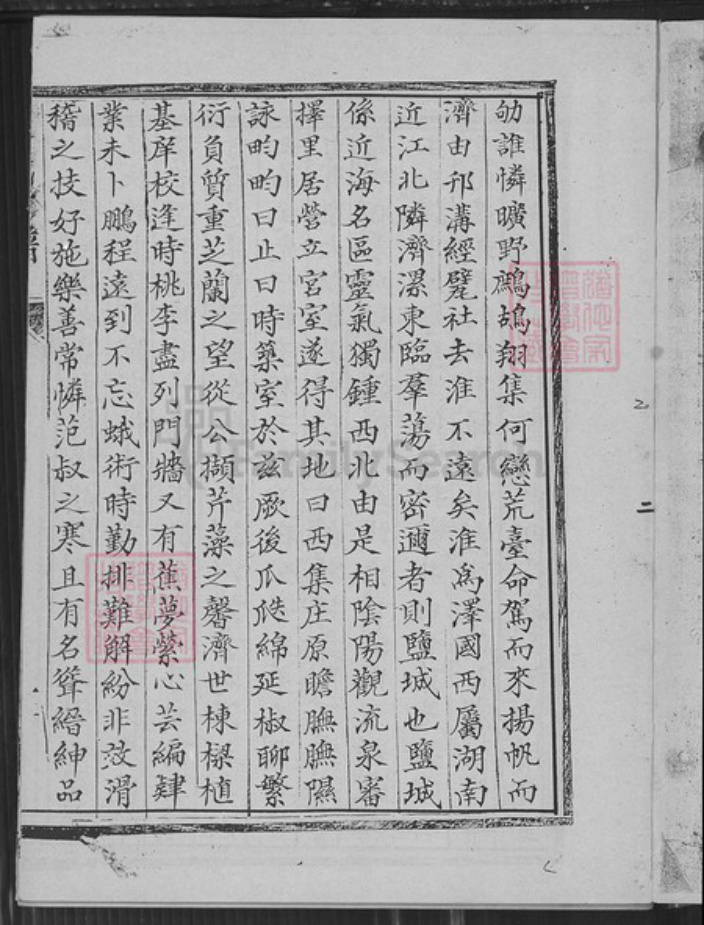 劬誰憐曠野鷓鴣翔集何戀荒臺命駕而來揚帆而
濟由邗溝經甓社去淮不遠矣淮為澤國西屬湖南
近江北隣濟漯東臨羣蕩而密邇者則鹽城也鹽城
係近海名區靈氣獨鍾西北由是相陰陽觀流泉審
擇里居營立宮室遂得其地曰西集庄原瞻膴膴隰
詠畇畇曰止曰時築室於茲厥後瓜瓞綿延椒聊繁
衍負質重芝蘭之望從公擷芹藻之馨濟世棟樑植
基庠校逢時桃李盡列門牆又有蕉夢縈心芸編肄
業未卜鵬程遠到不忘蛾術時勤排難解紛非效滑
稽之技好施樂善常憐范叔之寒且有名聳縉紳品
二
FamilySearch